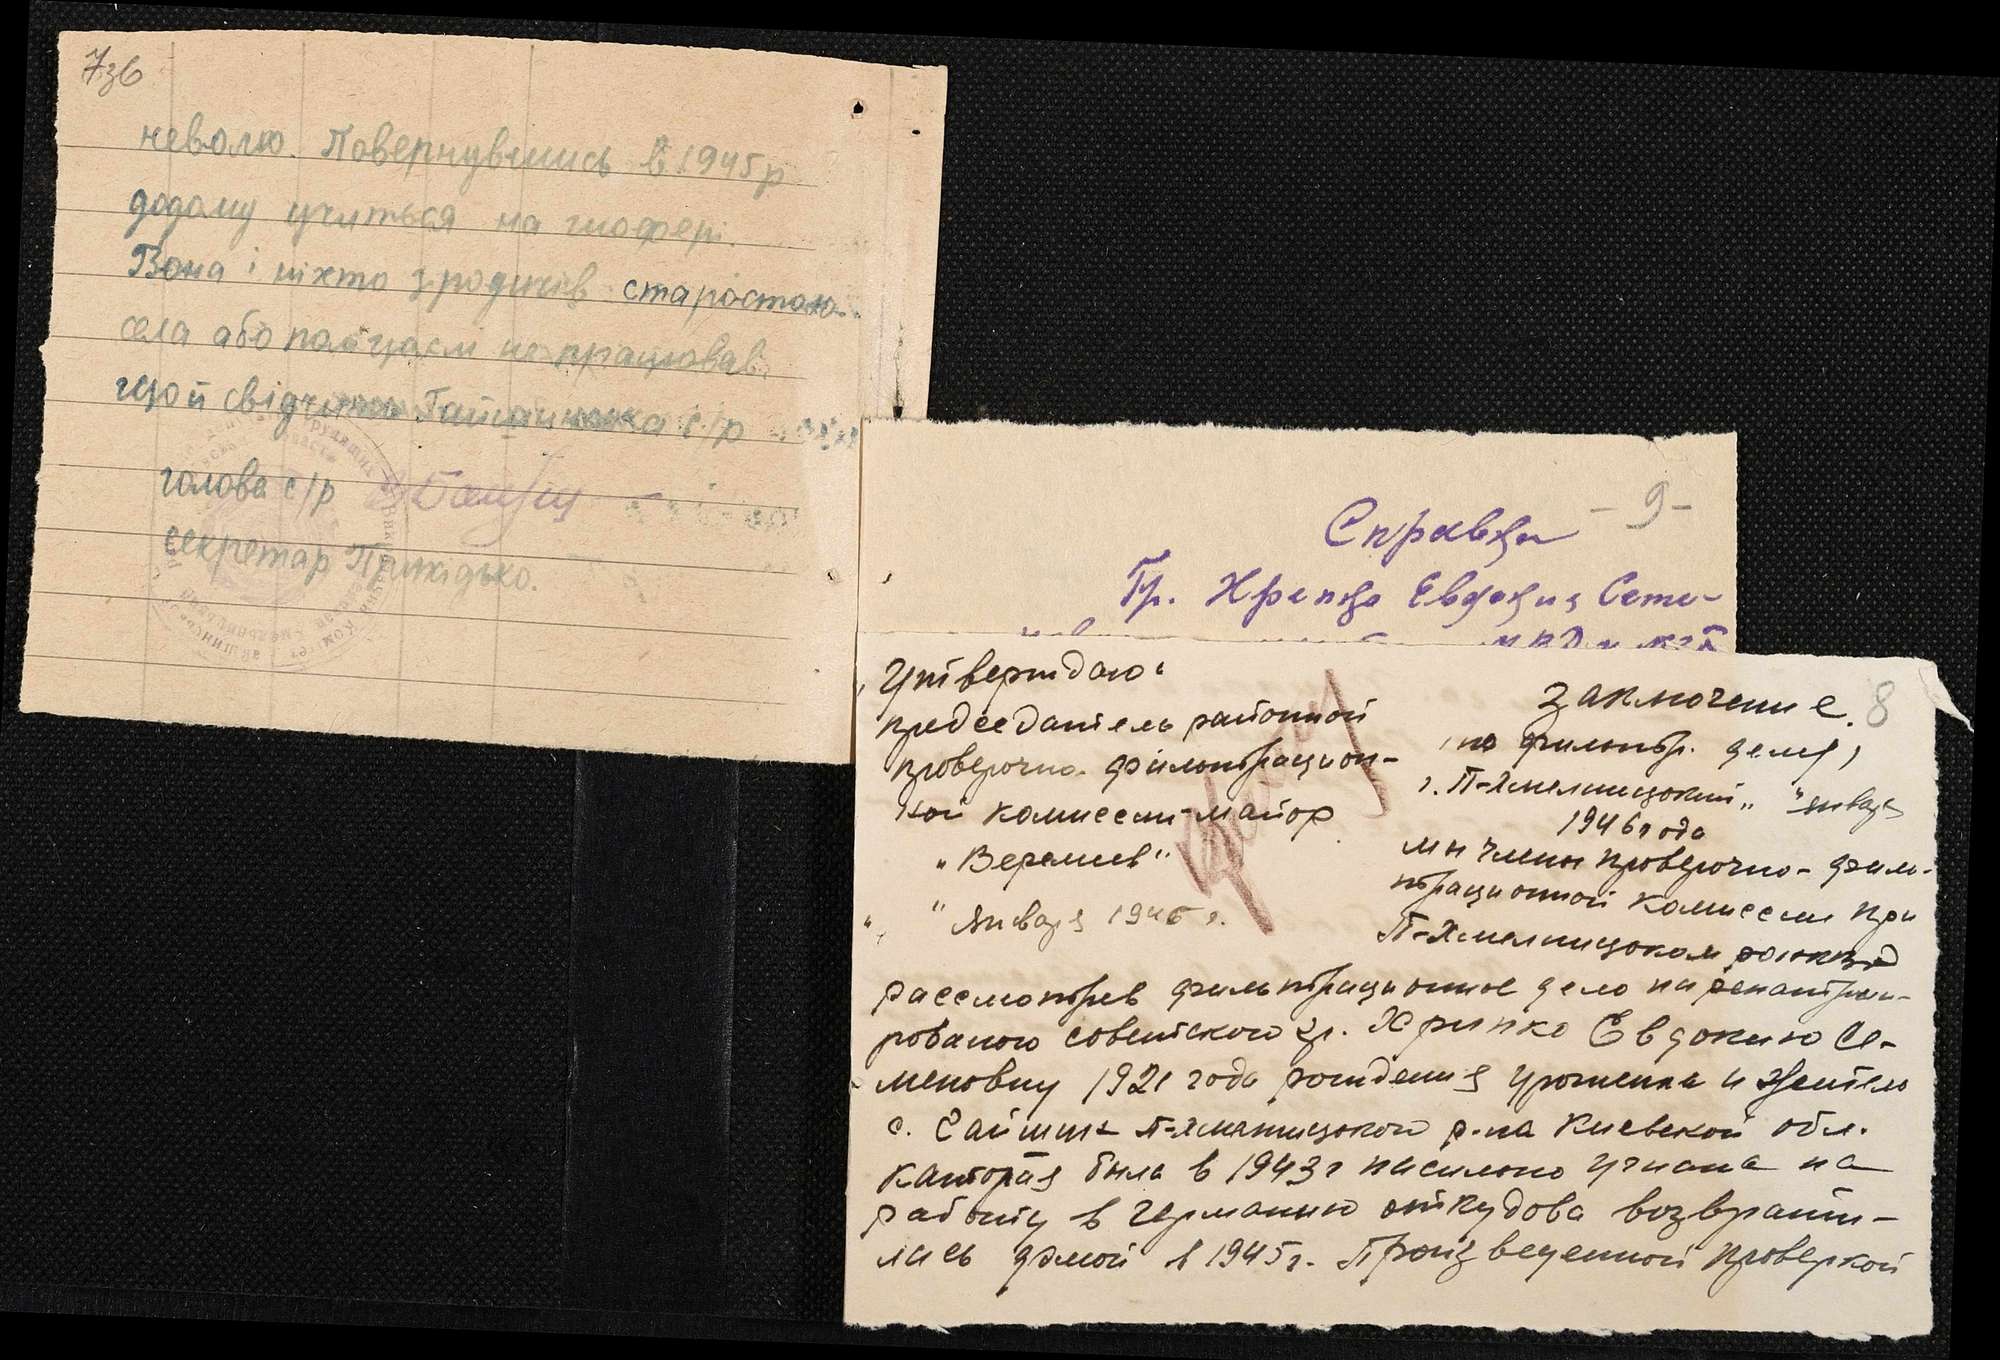 7зв
неволю. Повернувшись в 1945р
додому учиться на шофері.
Вона і ніхто з родичів старостою
села або поліцаєм не працював,
що й свідчить с/р
голова с/р
секретар
-9-
Справка
Гр. Евдокия Семе-
МВД и МГБ
8
„Утверждаю“
председатель районной
проверочно-фильтрацион-
ной комиссии-майор
„Веремиев“
„ “ января 1946 г.
Заключение.
(по фильтр. делу)
г. П-Хмельницький „ “ января
1946 года
мы члены проверочно-филь-
трационной комиссии при
П-Хмельницьком
рассмотрев фильтрационное дело на репатрии-
рованою советского гр. Хрипко Евдокию Се-
меновну 1921 года рождения уроженка и житель
с. Гайшин П-Хмельницького р-на Киевской обл.
каторая была в 1943г насильно угнана на
работу в Германию откудова возврати-
лась домой в 1945г. Произведенной проверкой